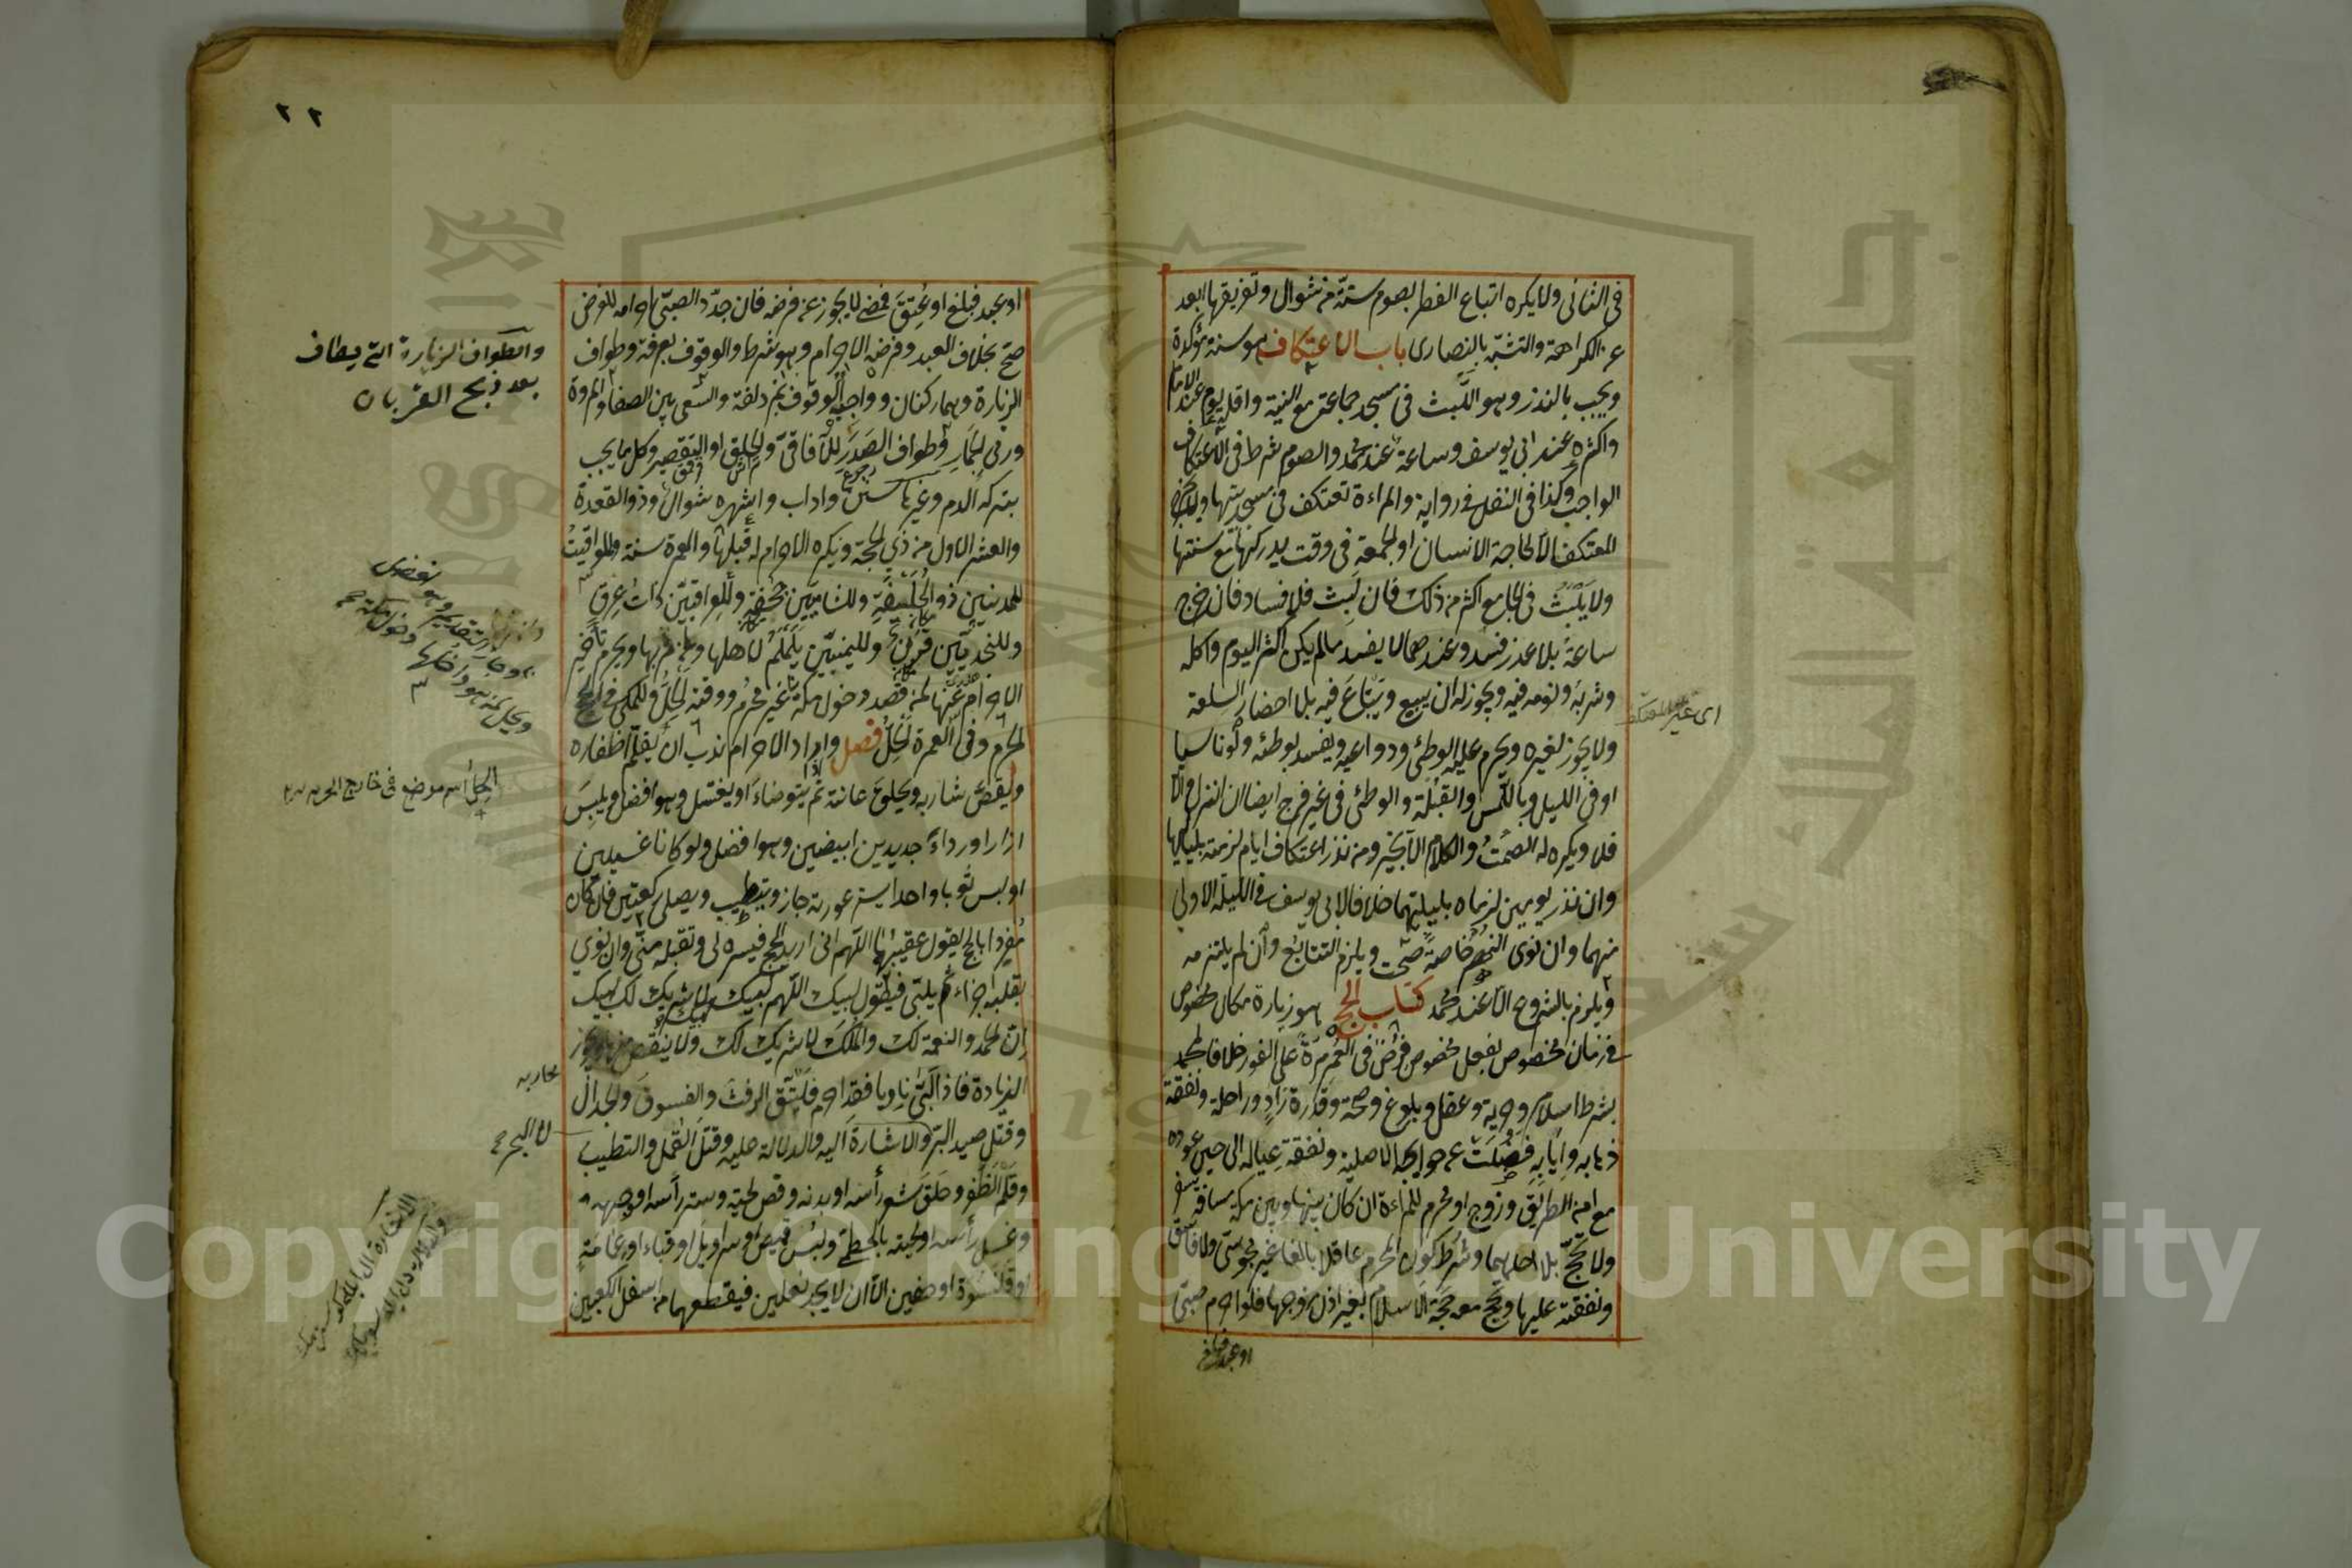 في الثاني ولا يكره اتباع الفطر بصوم ستة من شوال وتفريقها ابعد
عن الكراهة والتشبه بالنصارى باب الاعتكاف هو سنة مؤكدة
ويجب بالنذر وهو اللبث في مسجد جماعة مع النية واقله يوم عند الامام
واكثره عند ابي يوسف وساعة عند محمد والصوم شرط في الاعتكاف
الواجب وكذا في النفل في رواية والمراءة تعتكف في مسجد بيتها ولا يخرج
المعتكف الا لحاجة الانسان او الجمعة في وقت يدركها مع سنتها
ولا يلبث في الجامع اكثر من ذلك فان لبث فلا فساد فان خرج
ساعة بلا عذر فسد وعندهما لا يفسد ما لم يكن اكثر اليوم واكله
وشربه ونومه فيه ويجوز له ان يبيع ويبتاع فيه بلا احضار السلعة
ولا يجوز لغيره ويحرم عليه الوطئ ودواعيه ويفسد بوطئه ولو ناسيا
او في الليل وباللمس والقبلة والوطئ في غير فرج ايضا ان انزل والا
فلا ويكره له الصمت والكلام الا بخير ومن نذر اعتكاف ايام لزمته بلياليها
وان نذر يومين لزماه بليلتهما خلافا لابي يوسف في الليلة الاولى
منهما وان نوى النهر خاصة صحت ويلزم التتابع وان لم يلتزمه
ويلزم بالشروع الا عند محمد كتاب الحج هو زيارة مكان مخصوص
في زمان مخصوص بفعل مخصوص فرض في العمر مرة على الفور خلافا لمحمد
بشرط اسلام وحرية وعقل وبلوغ وصحة وقدرة زاد وراحلة ونفقة
ذهابه وايابه فضلت عن حوايجه الاصلية ونفقة عياله الى حين عوده
مع امن الطريق وزوج او محرم للمراءة ان كان بينها وبين مكة مسافة سفر
ولا تحج بلا احدهما وشرط كون المحرم عاقلا بالغا غير مجوسي ولا فاسق
ونفقته عليها وتحج معه حجة الاسلام بغير اذن زوجها فلو احرم صبي
او عبد فبلغ
اى غير المعتكف
٢٢
او عبد فبلغ او عتق فمضى لا يجوز عن فرضه فان جدد الصبي احرامه للفرض
صح بخلاف العبد وفرضه الاحرام وهو شرط والوقوف بعرفة وطواف
الزيارة وهما ركنان وواجبه الوقوف بمزدلفة والسعي بين الصفا والمروة
ورمي الجمار وطواف الصدر للآفاقي والحلق او التقصير وكل ما يجب
بتركه الدم وغيرها سنن واداب واشهره شوال وذو القعدة
والعشر الاول من ذي الحجة ويكره الاحرام له قبلها والعمرة سنة والمواقيت
للمدنيين ذو الحليفة وللشاميين جحفة وللعراقيين ذات عرق
وللنجديين قرن ولليمنيين يلملم لاهلها ولمن مر بها ويحرم تأخير
الاحرام عنها لمن قصد دخول مكة غير محرم ووقته الحل وللمكي في الحج
الحرم وفي العمرة الحل فصل واذا اراد الاحرام ندب ان يقلم اظفاره
ويقص شاربه ويحلق عانته ثم يتوضاء او يغتسل وهو افضل ويلبس
ازارا ورداء جديدين ابيضين وهو افضل ولو كانا غسيلين
او لبس ثوبا واحدا يستر عورته جاز ويتطيب ويصلي ركعتين فان كان
مفردا بالحج يقول عقيبهما اللهم اني اريد الحج فيسره لي وتقبله مني وان نوى
بقلبه اجزاءه ثم يلبي فيقول لبيك اللهم لبيك لا شريك لك لبيك
ان الحمد والنعمة لك والملك لا شريك لك ولا ينقص منها ويجوز
الزيادة فاذا لبى ناويا فقد احرم فليتق الرفث والفسوق والجدال
وقتل صيد البر والاشارة اليه والدلالة عليه وقتل القمل والتطيب
وقلم الظفر وحلق شعر رأسه او بدنه وقص لحيته وستر رأسه او وجهه
وغسل رأسه او لحيته بالخطمي ولبس قميص او سراويل او قباء او عمامة
او قلنسوة او خفين الا ان لا يجد نعلين فيقطعهما من اسفل الكعبين
والطواف الزيارة التى يطاف
بعد ذبح القربان
الحل اسم موضع فى خارج الحرم
لا البحر
Copyright © King Saud University